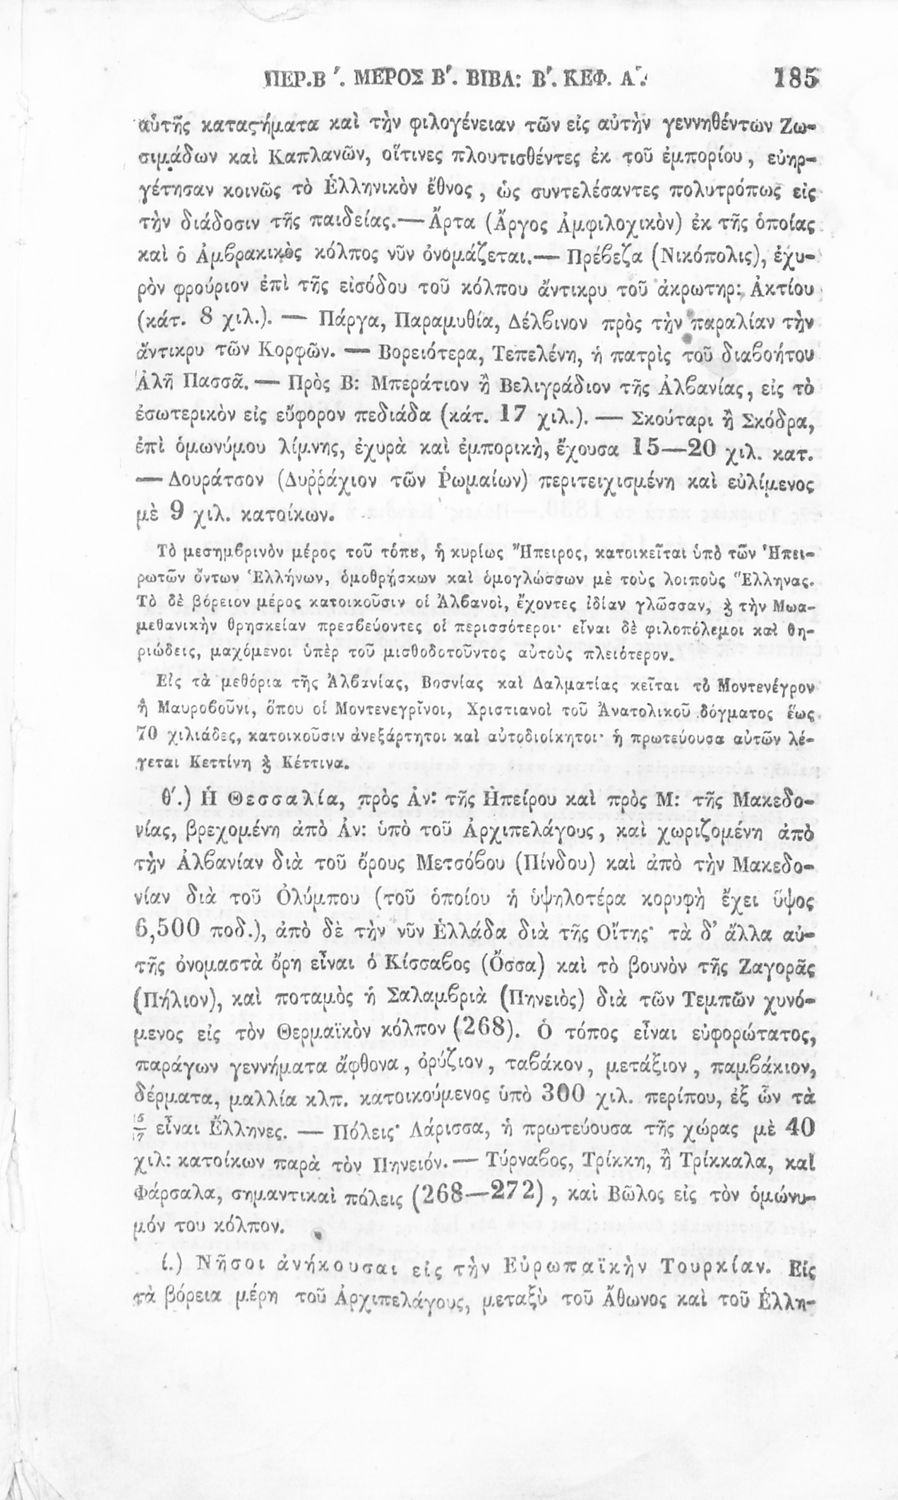 ΠΕΡ.Β΄. ΜΕΡΟΣ Β΄. ΒΙΒΛ: Β΄. ΚΕΦ. Α΄. 185
αὐτῆς καταϛήματα καὶ τὴν φιλογένειαν τῶν εἰς αὐτὴν γεννηθέντων Ζω-
σιμάδων καὶ Καπλανῶν, οἵτινες πλουτισθέντες ἐκ τοῦ ἐμπορίου, εὐηρ-
γέτησαν κοινῶς τὸ Ἑλληνικὸν ἔθνος, ὡς συντελέσαντες πολυτρόπως εἰς
τὴν διάδοσιν τῆς παιδείας.—Ἄρτα (Ἄργος Ἀμφιλοχικὸν) ἐκ τῆς ὁποίας
καὶ ὁ Ἀμβρακικὸς κόλπος νῦν ὀνομάζεται.— Πρέβεζα (Νικόπολις), ἐχυ-
ρὸν φρούριον ἐπὶ τῆς εἰσόδου τοῦ κόλπου ἄντικρυ τοῦ ἀκρωτηρ: Ἀκτίου
(κάτ. 8 χιλ.). — Πάργα, Παραμυθία, Δέλβινον πρὸς τὴν παραλίαν τὴν
ἄντικρυ τῶν Κορφῶν. — Βορειότερα, Τεπελένη, ἡ πατρὶς τοῦ διαβοήτου
Ἀλῆ Πασσᾶ. — Πρὸς Β: Μπεράτιον ἢ Βελιγράδιον τῆς Ἀλβανίας, εἰς τὸ
ἐσωτερικὸν εἰς εὔφορον πεδιάδα (κάτ. 17 χιλ.). — Σκούταρι ἢ Σκόδρα,
ἐπὶ ὁμωνύμου λίμνης, ἐχυρὰ καὶ ἐμπορικὴ, ἔχουσα 15—20 χιλ. κατ.
— Δουράτσον (Δυῤῥάχιον τῶν Ῥωμαίων) περιτειχισμένη καὶ εὐλίμενος
μὲ 9 χιλ. κατοίκων.
Τὸ μεσημβρινὸν μέρος τοῦ τόπȣ, ἡ κυρίως Ἤπειρος, κατοικεῖται ὑπὸ τῶν Ἠπει-
ρωτῶν ὄντων Ἑλλήνων, ὁμοθρήσκων καὶ ὁμογλώσσων μὲ τοὺς λοιποὺς Ἕλληνας.
Τὸ δὲ βόρειον μέρος κατοικοῦσιν οἱ Ἀλβανοὶ, ἔχοντες ἰδίαν γλῶσσαν, ϗ τὴν Μωα-
μεθανικὴν θρησκείαν πρεσβεύοντες οἱ περισσότεροι· εἶναι δὲ φιλοπόλεμοι καὶ θη-
ριώδεις, μαχόμενοι ὑπὲρ τοῦ μισθοδοτοῦντος αὐτοὺς πλειότερον.
Εἰς τὰ μεθόρια τῆς Ἀλβανίας, Βοσνίας καὶ Δαλματίας κεῖται τὸ Μοντενέγρον
ἢ Μαυροβοῦνι, ὅπου οἱ Μοντενεγρῖνοι, Χριστιανοὶ τοῦ Ἀνατολικοῦ δόγματος ἕως
70 χιλιάδες, κατοικοῦσιν ἀνεξάρτητοι καὶ αὐτοδιοίκητοι· ἡ πρωτεύουσα αὐτῶν λέ-
γεται Κεττίνη ϗ Κέττινα.
θ΄.) Ἡ Θεσσαλία, πρὸς Ἀν: τῆς Ἠπείρου καὶ πρὸς Μ: τῆς Μακεδο-
νίας, βρεχομένη ἀπὸ Ἀν: ὑπὸ τοῦ Ἀρχιπελάγους, καὶ χωριζομένη ἀπὸ
τὴν Ἀλβανίαν διὰ τοῦ ὄρους Μετσόβου (Πίνδου) καὶ ἀπὸ τὴν Μακεδο-
νίαν διὰ τοῦ Ὀλύμπου (τοῦ ὁποίου ἡ ὑψηλοτέρα κορυφὴ ἔχει ὕψος
6,500 ποδ.), ἀπὸ δὲ τὴν νῦν Ἑλλάδα διὰ τῆς Οἴτης· τὰ δ' ἄλλα αὐ-
τῆς ὀνομαστὰ ὄρη εἶναι ὁ Κίσσαβος (Ὄσσα) καὶ τὸ βουνὸν τῆς Ζαγορᾶς
(Πήλιον), καὶ ποταμὸς ἡ Σαλαμβριὰ (Πηνειὸς) διὰ τῶν Τεμπῶν χυνό-
μενος εἰς τὸν Θερμαϊκὸν κόλπον (268). Ὁ τόπος εἶναι εὐφορώτατος,
παράγων γεννήματα ἄφθονα, ὀρύζιον, ταβάκον, μετάξιον, παμβάκιον,
δέρματα, μαλλία κλπ. κατοικούμενος ὑπὸ 300 χιλ. περίπου, ἐξ ὧν τὰ
5/7 εἶναι Ἕλληνες. — Πόλεις· Λάρισσα, ἡ πρωτεύουσα τῆς χώρας μὲ 40
χιλ: κατοίκων παρὰ τὸν Πηνειόν.— Τύρναβος, Τρίκκη, ἢ Τρίκκαλα, καὶ
Φάρσαλα, σημαντικαὶ πόλεις (268—272), καὶ Βῶλος εἰς τὸν ὁμώνυ-
μόν του κόλπον.
ί.) Νῆσοι ἀνήκουσαι εἰς τὴν Εὐρωπαϊκὴν Τουρκίαν. Εἰς
τὰ βόρεια μέρη τοῦ Ἀρχιπελάγους, μεταξὺ τοῦ Ἄθωνος καὶ τοῦ Ἑλλη-